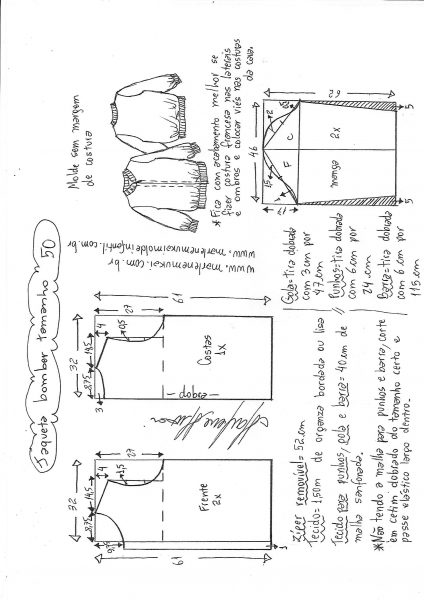 Jaqueta bomber tamanho 50
Molde sem margem
de costura
* Fica com acabamento melhor se
fizer costura francesa nas laterais
e ombros e colocar viés nas costuras
da cava.
www.marlenemukai.com.br
www.marlenemukaimoldeinfantil.com.br
32
8,75
14,5
4
1,5
27
9,75
61
Frente
2x
1
32
8,75
14,5
4
0,5
27
3
61
Costas
1x
dobra
46
62
17
2
F
C
manga
2x
5
5
Gola=tira dobrada
com 3 cm por
47 cm
Punhos=tira dobrada
com 6 cm por
24 cm
Barra=tira dobrada
com 6 cm por
115 cm
Zíper removível= 52 cm
Tecido= 1,50m de organza bordada ou lisa
Tecido para punhos, gola e barra= 40 cm de
malha sanfonada.
*Não tendo a malha para punhos e barra, corte
em cetim dobrado do tamanho certo e
passe elástico largo dentro.